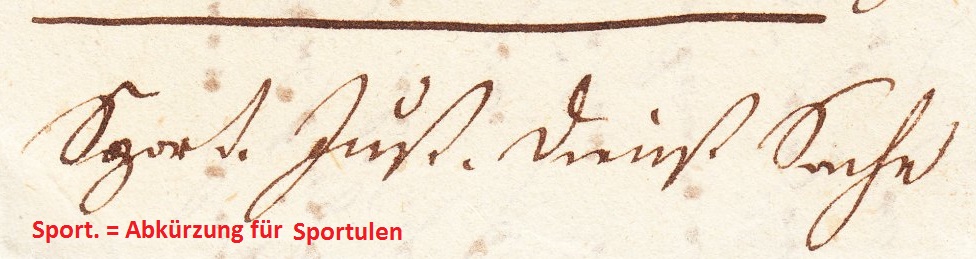 Sport. Just. Dienst Sache
Sport. = Abkürzung für Sportulen